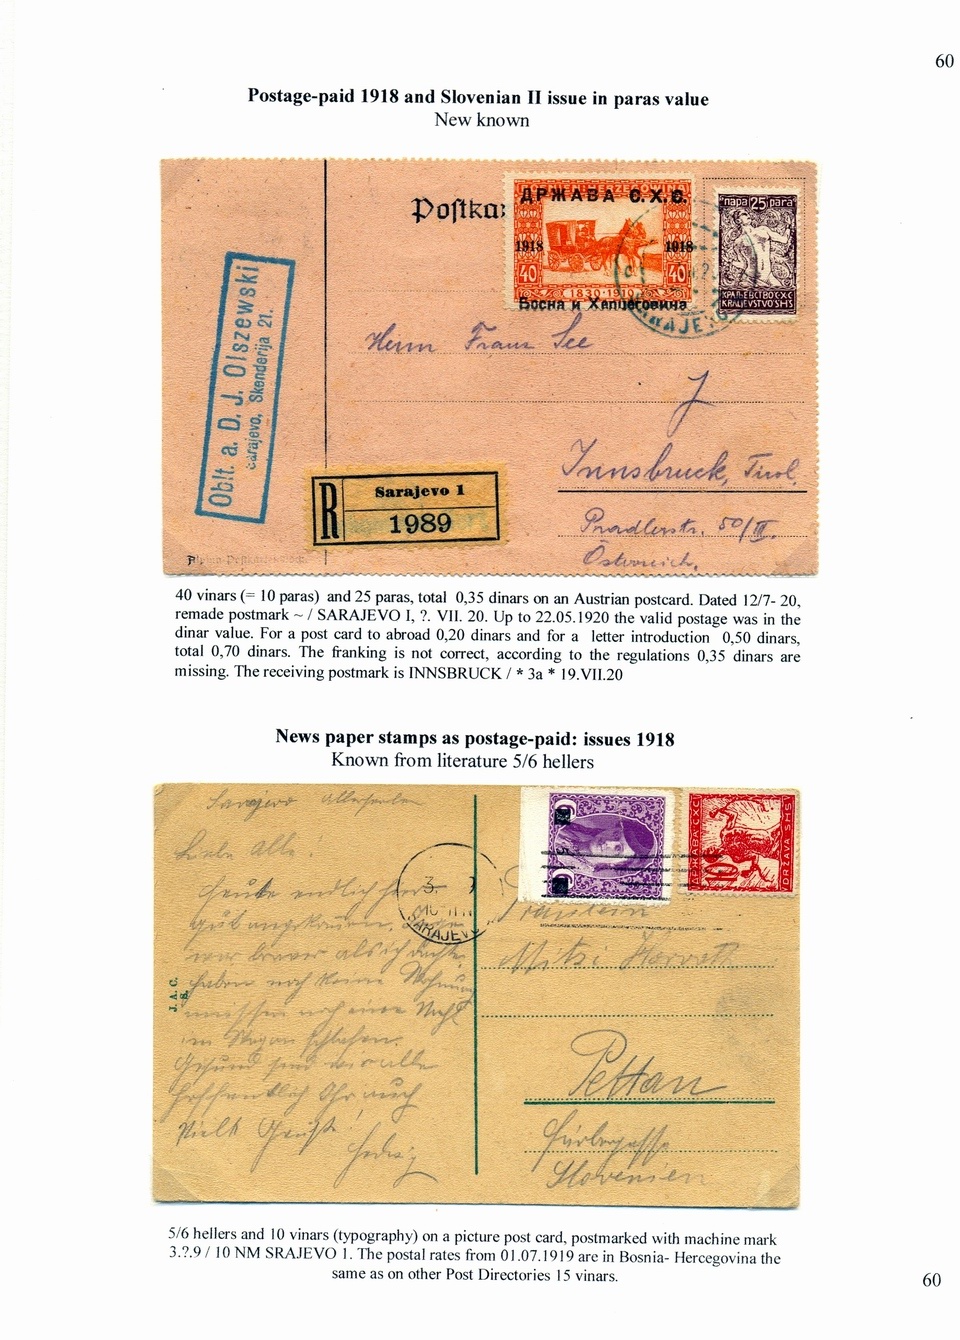 60
Postage-paid 1918 and Slovenian II issue in paras value
New known
Postkar
ДРЖАВА С.Х.С.
1918 1918
40 40
1830-1910
Босна и Херцеговина
пара 25 para
КРАЉЕВСТВО СХС
KRALJEVSTVO SHS
SARAJEVO
Oblt. a. D. J. Olszewski
Sarajevo, Skenderija 21.
Herrn Franz See
J
Innsbruck, Tirol.
Pradlerstr. 50/III.
Österreich.
R
Sarajevo 1
1989
40 vinars (= 10 paras) and 25 paras, total 0,35 dinars on an Austrian postcard. Dated 12/7- 20,
remade postmark ~ / SARAJEVO I, ?. VII. 20. Up to 22.05.1920 the valid postage was in the
dinar value. For a post card to abroad 0,20 dinars and for a letter introduction 0,50 dinars,
total 0,70 dinars. The franking is not correct, according to the regulations 0,35 dinars are
missing. The receiving postmark is INNSBRUCK / * 3a * 19.VII.20
News paper stamps as postage-paid: issues 1918
Known from literature 5/6 hellers
Liebe alle
Heute endlich hier
gut angekommen.
haben noch keine Wohnung
müssen noch eine Nacht
im Wagon schlafen.
Gesund sind wir alle
hoffentlich Ihr auch
Viele Grüße!
Hedwig
J. A. C.
S.
3
SARAJEVO
ДРЖАВА СХС
10
DRŽAVA SHS
Fräulein
Mitzi Horvath
Pettau
Färbergasse
Slovenien
5/6 hellers and 10 vinars (typography) on a picture post card, postmarked with machine mark
3.?.9 / 10 NM SRAJEVO 1. The postal rates from 01.07.1919 are in Bosnia- Hercegovina the
same as on other Post Directories 15 vinars.
60